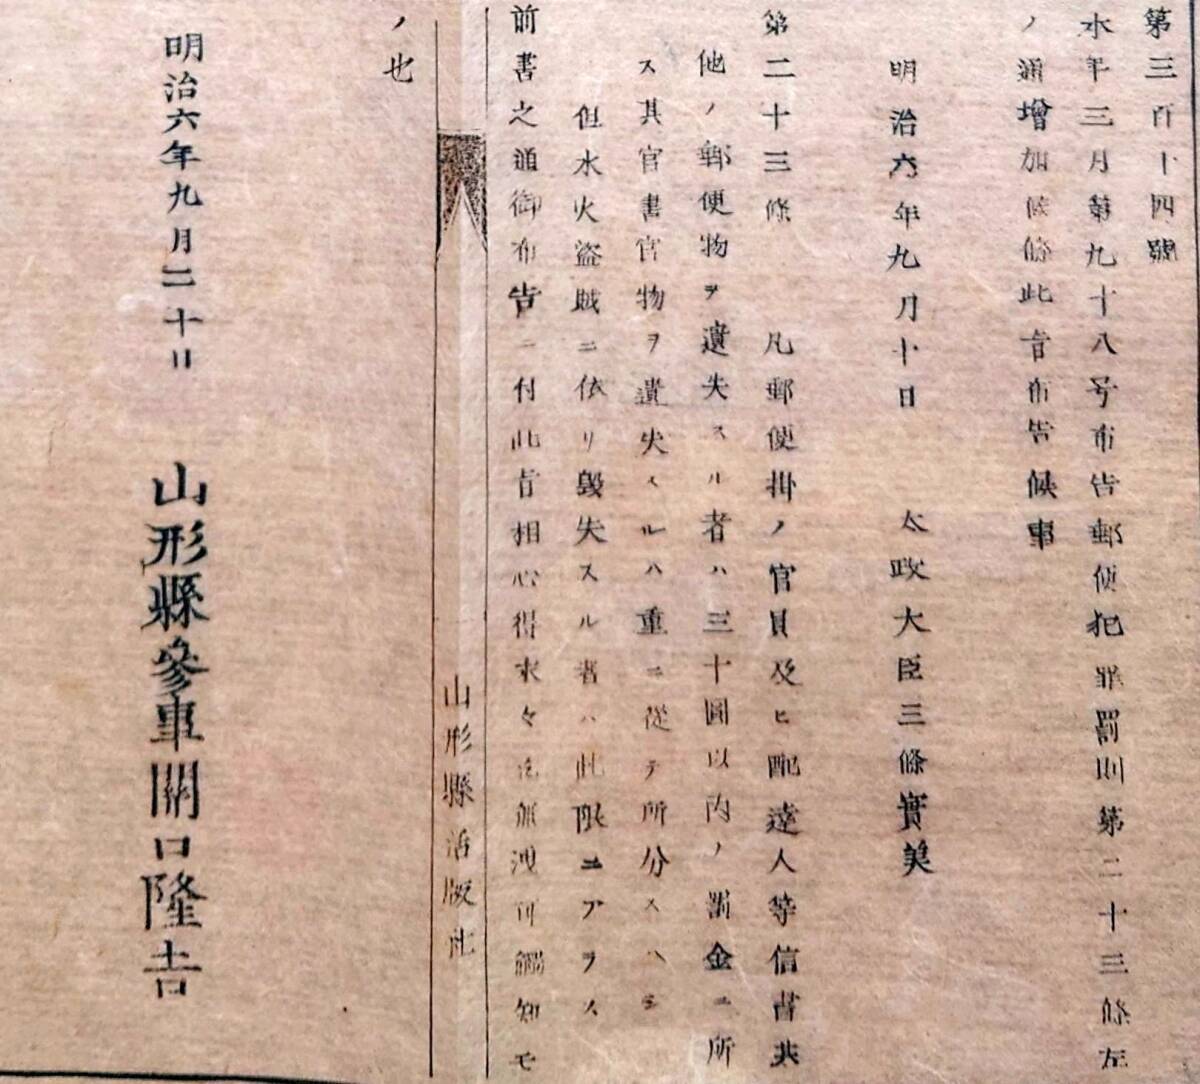 第三百十四號
本年三月第九十八号布告郵便犯罪罰則第二十三條左
ノ通增加候條此旨布告候事
明治六年九月十日　太政大臣三條實美
第二十三條　凡郵便掛ノ官員及ヒ配達人等信書其
他ノ郵便物ヲ遺失スル者ハ三十圓以内ノ罰金ニ所
ス其官書官物ヲ遺失スルハ重ニ從テ所分スヘシ
但水火盜賊ニ依リ毀失スル者ハ此限ニアラス
前書之通御布告ニ付此旨相心得末々迄無洩可觸知モ
山形縣活版社
ノ也
明治六年九月二十日　山形縣參事關口隆吉